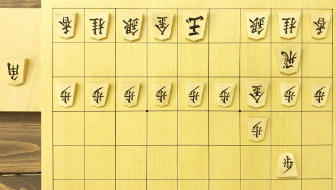 香桂銀金王銀桂香
飛
角
歩歩歩歩歩歩金歩歩
歩
歩